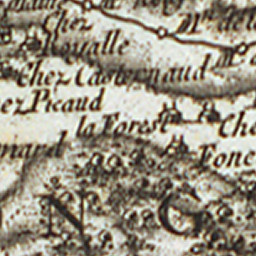 Chez
Royalle
Chez Casternaud
ez Picaud
la Forest
Ch
nard
Fonc
N C